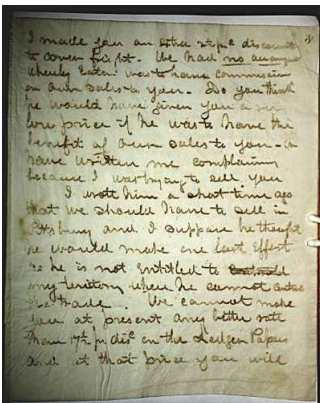 I made you an extra 2½ pc discount
to cover fright. We had no
whereby Eaton was to have commission
on our sales to you. Do you think
he would have given you a
low price if he was to have the
benefit of our sales to you - or
have written me complaining
because I was trying to sell you
I wrote him a short time ago
that we should have to sell in
and I suppose he thought
he would make one last effort
as he is not entitled to
any territory where he cannot
the trade. We cannot make
you at present any better rate
than 17½ pc disc on the Ledger Papers
and at that price you will